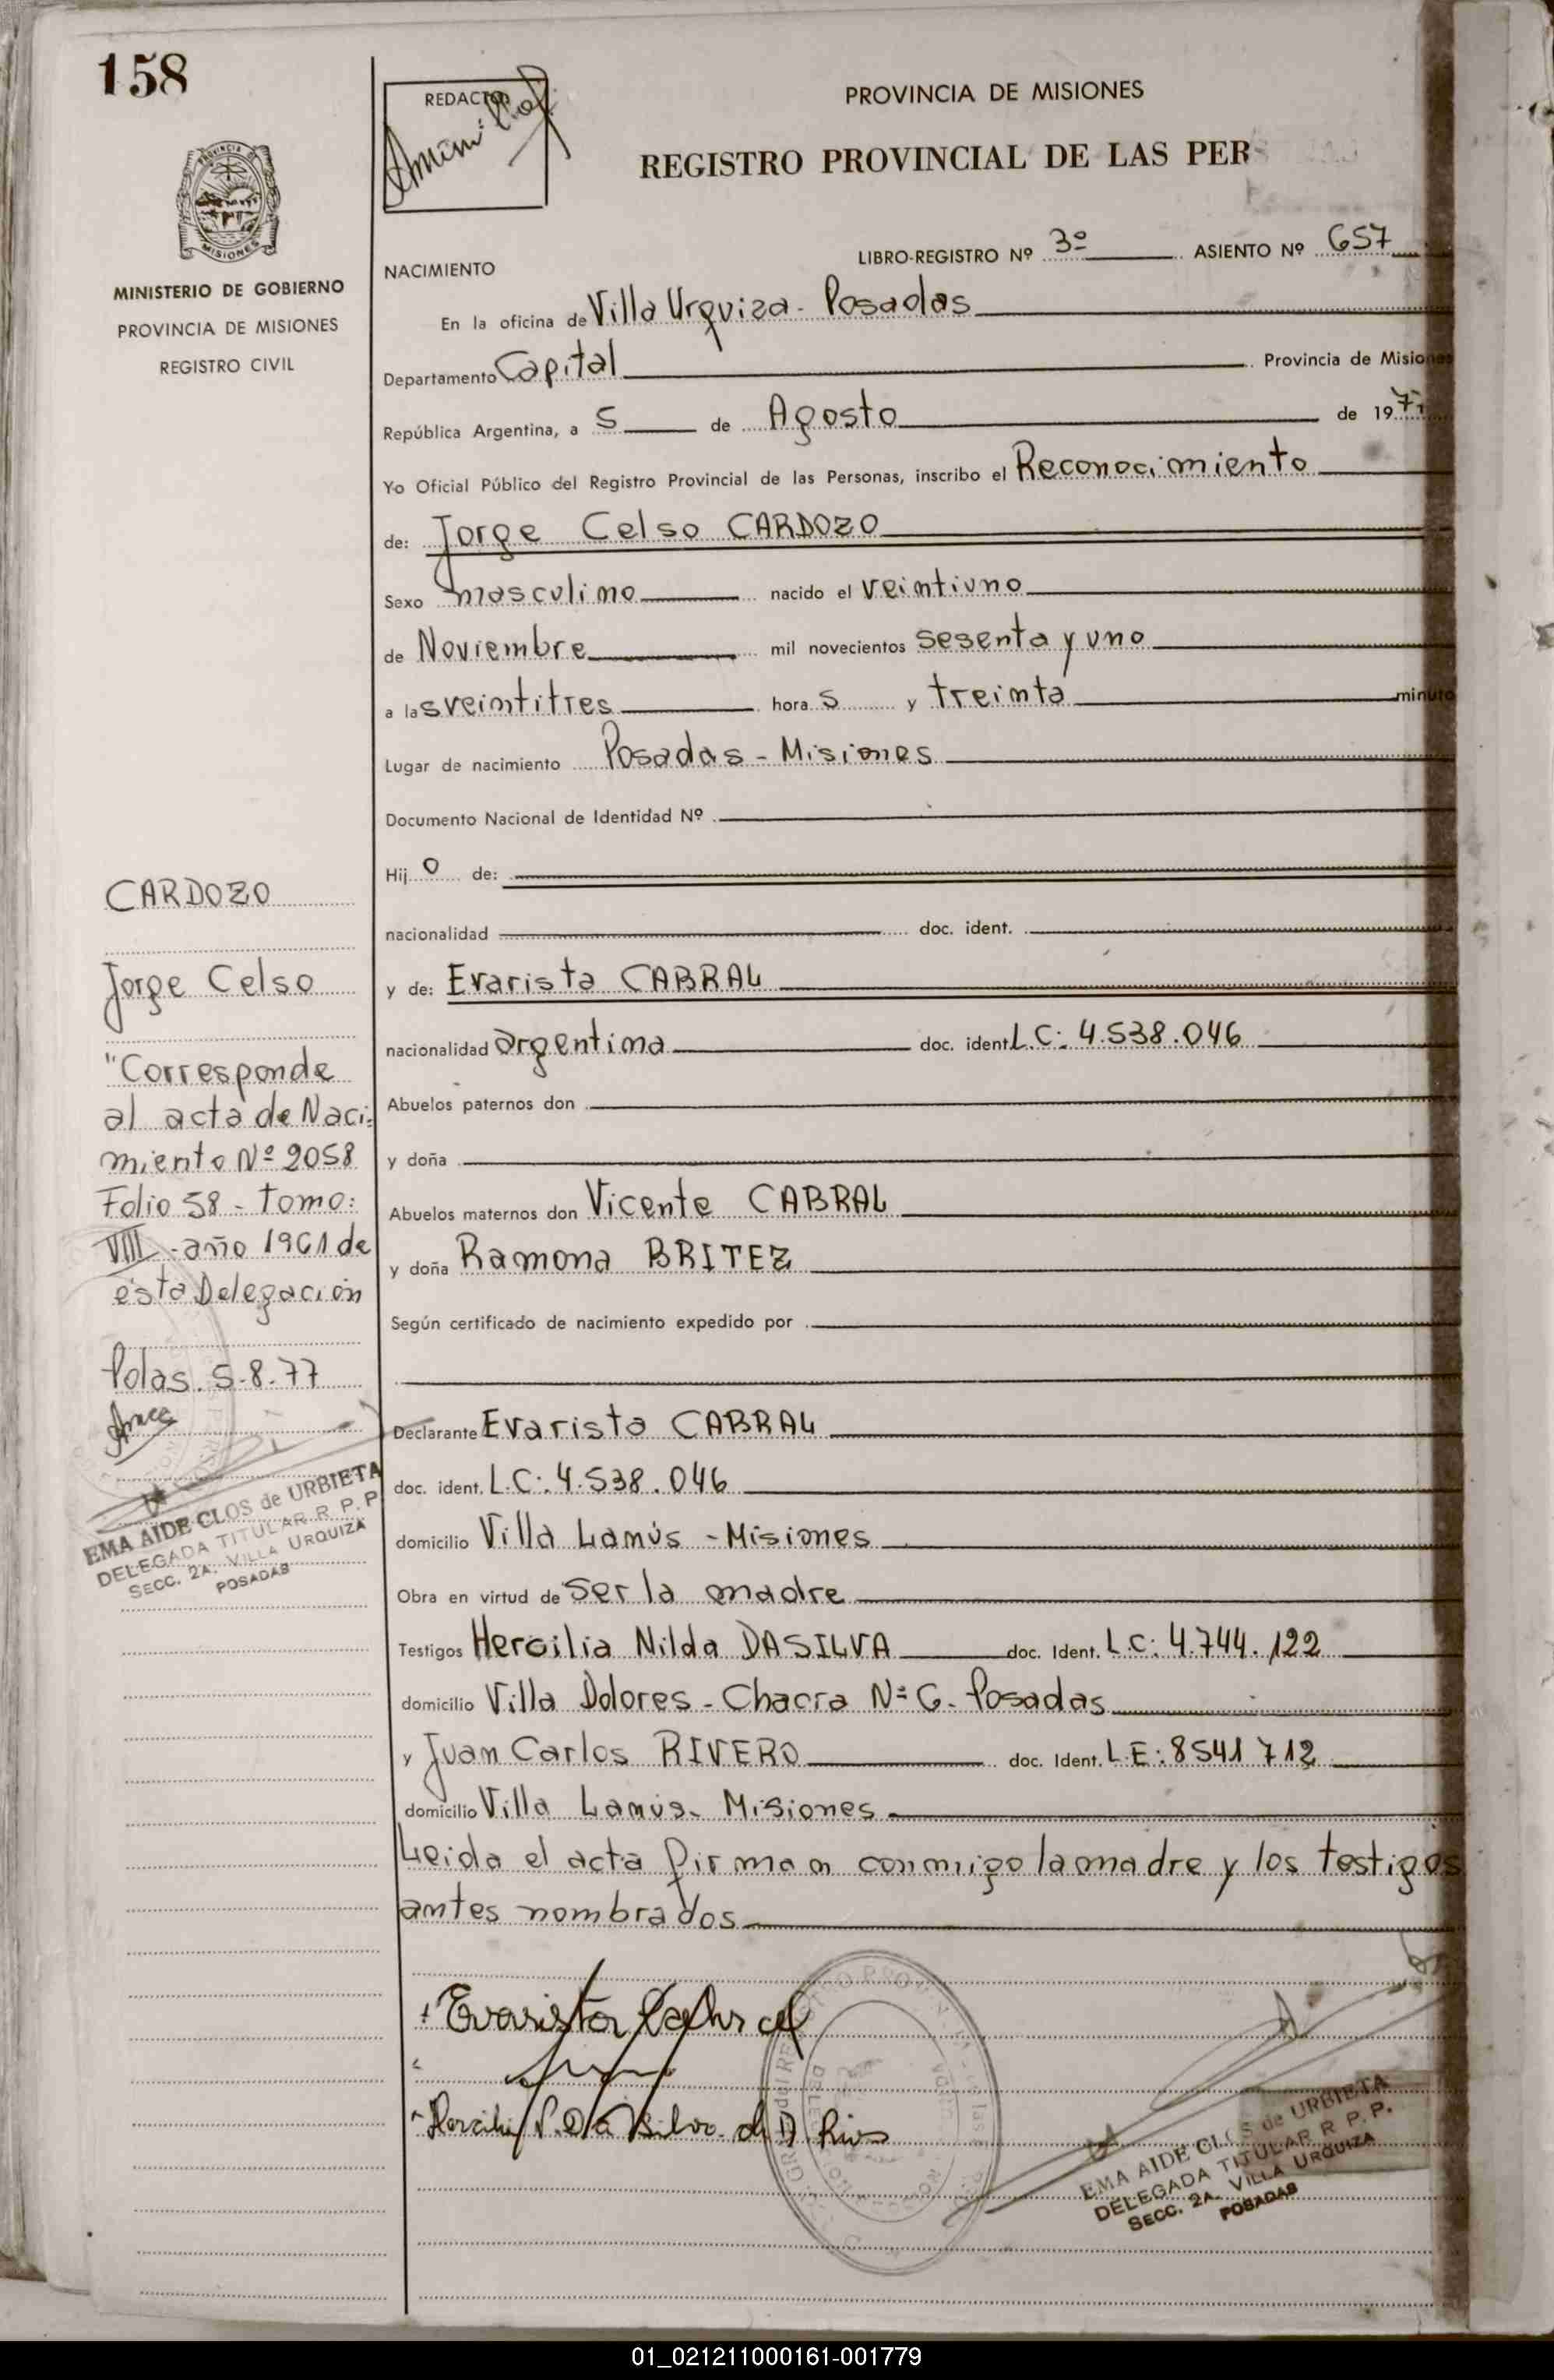 158
PROVINCIA DE MISIONES
MINISTERIO DE GOBIERNO
PROVINCIA DE MISIONES
REGISTRO CIVIL
REDACTOR
PROVINCIA DE MISIONES
REGISTRO PROVINCIAL DE LAS PER
LIBRO-REGISTRO Nº 3º ASIENTO Nº 657
NACIMIENTO
En la oficina de Villa Urquiza - Posadas
Departamento Capital Provincia de Misiones
República Argentina, a 5 de Agosto de 1977
Yo Oficial Público del Registro Provincial de las Personas, inscribo el Reconocimiento
de: Jorge Celso CARDOZO
Sexo masculino nacido el veintiuno
de Noviembre mil novecientos sesenta y uno
a las veintitres horas y treinta minuto
Lugar de nacimiento Posadas - Misiones
Documento Nacional de Identidad Nº
Hijo de:
nacionalidad doc. ident.
y de: Evarista CABRAL
nacionalidad argentina doc. ident. L.C: 4.538.046
Abuelos paternos don
y doña
Abuelos maternos don Vicente CABRAL
y doña Ramona BRITEZ
Según certificado de nacimiento expedido por
Declarante Evarista CABRAL
doc. ident. L.C: 4.538.046
domicilio Villa Lanús - Misiones
Obra en virtud de ser la madre
Testigos Hercilia Nilda DASILVA doc. Ident. L.C: 4.744.122
domicilio Villa Dolores - Chacra Nº 6 - Posadas
y Juan Carlos RIVERO doc. Ident. L.E: 8541712
domicilio Villa Lanús - Misiones
Leida el acta firman conmigo la madre y los testigos
antes nombrados
Evarista Cabral
EMA AIDE CLOS de URBIETA
DELEGADA TITULAR R P. P.
SECC. 2A. VILLA URQUIZA
POSADAS
CARDOZO
Jorge Celso
"Corresponde
al acta de Naci-
miento Nº 2058
Folio 58 - Tomo:
VIII - año 1961 de
ésta Delegación
Pdas. 5-8-77
EMA AIDE CLOS de URBIETA
DELEGADA TITULAR R P. P
SECC. 2A. VILLA URQUIZA
POSADAS
01_021211000161-001779